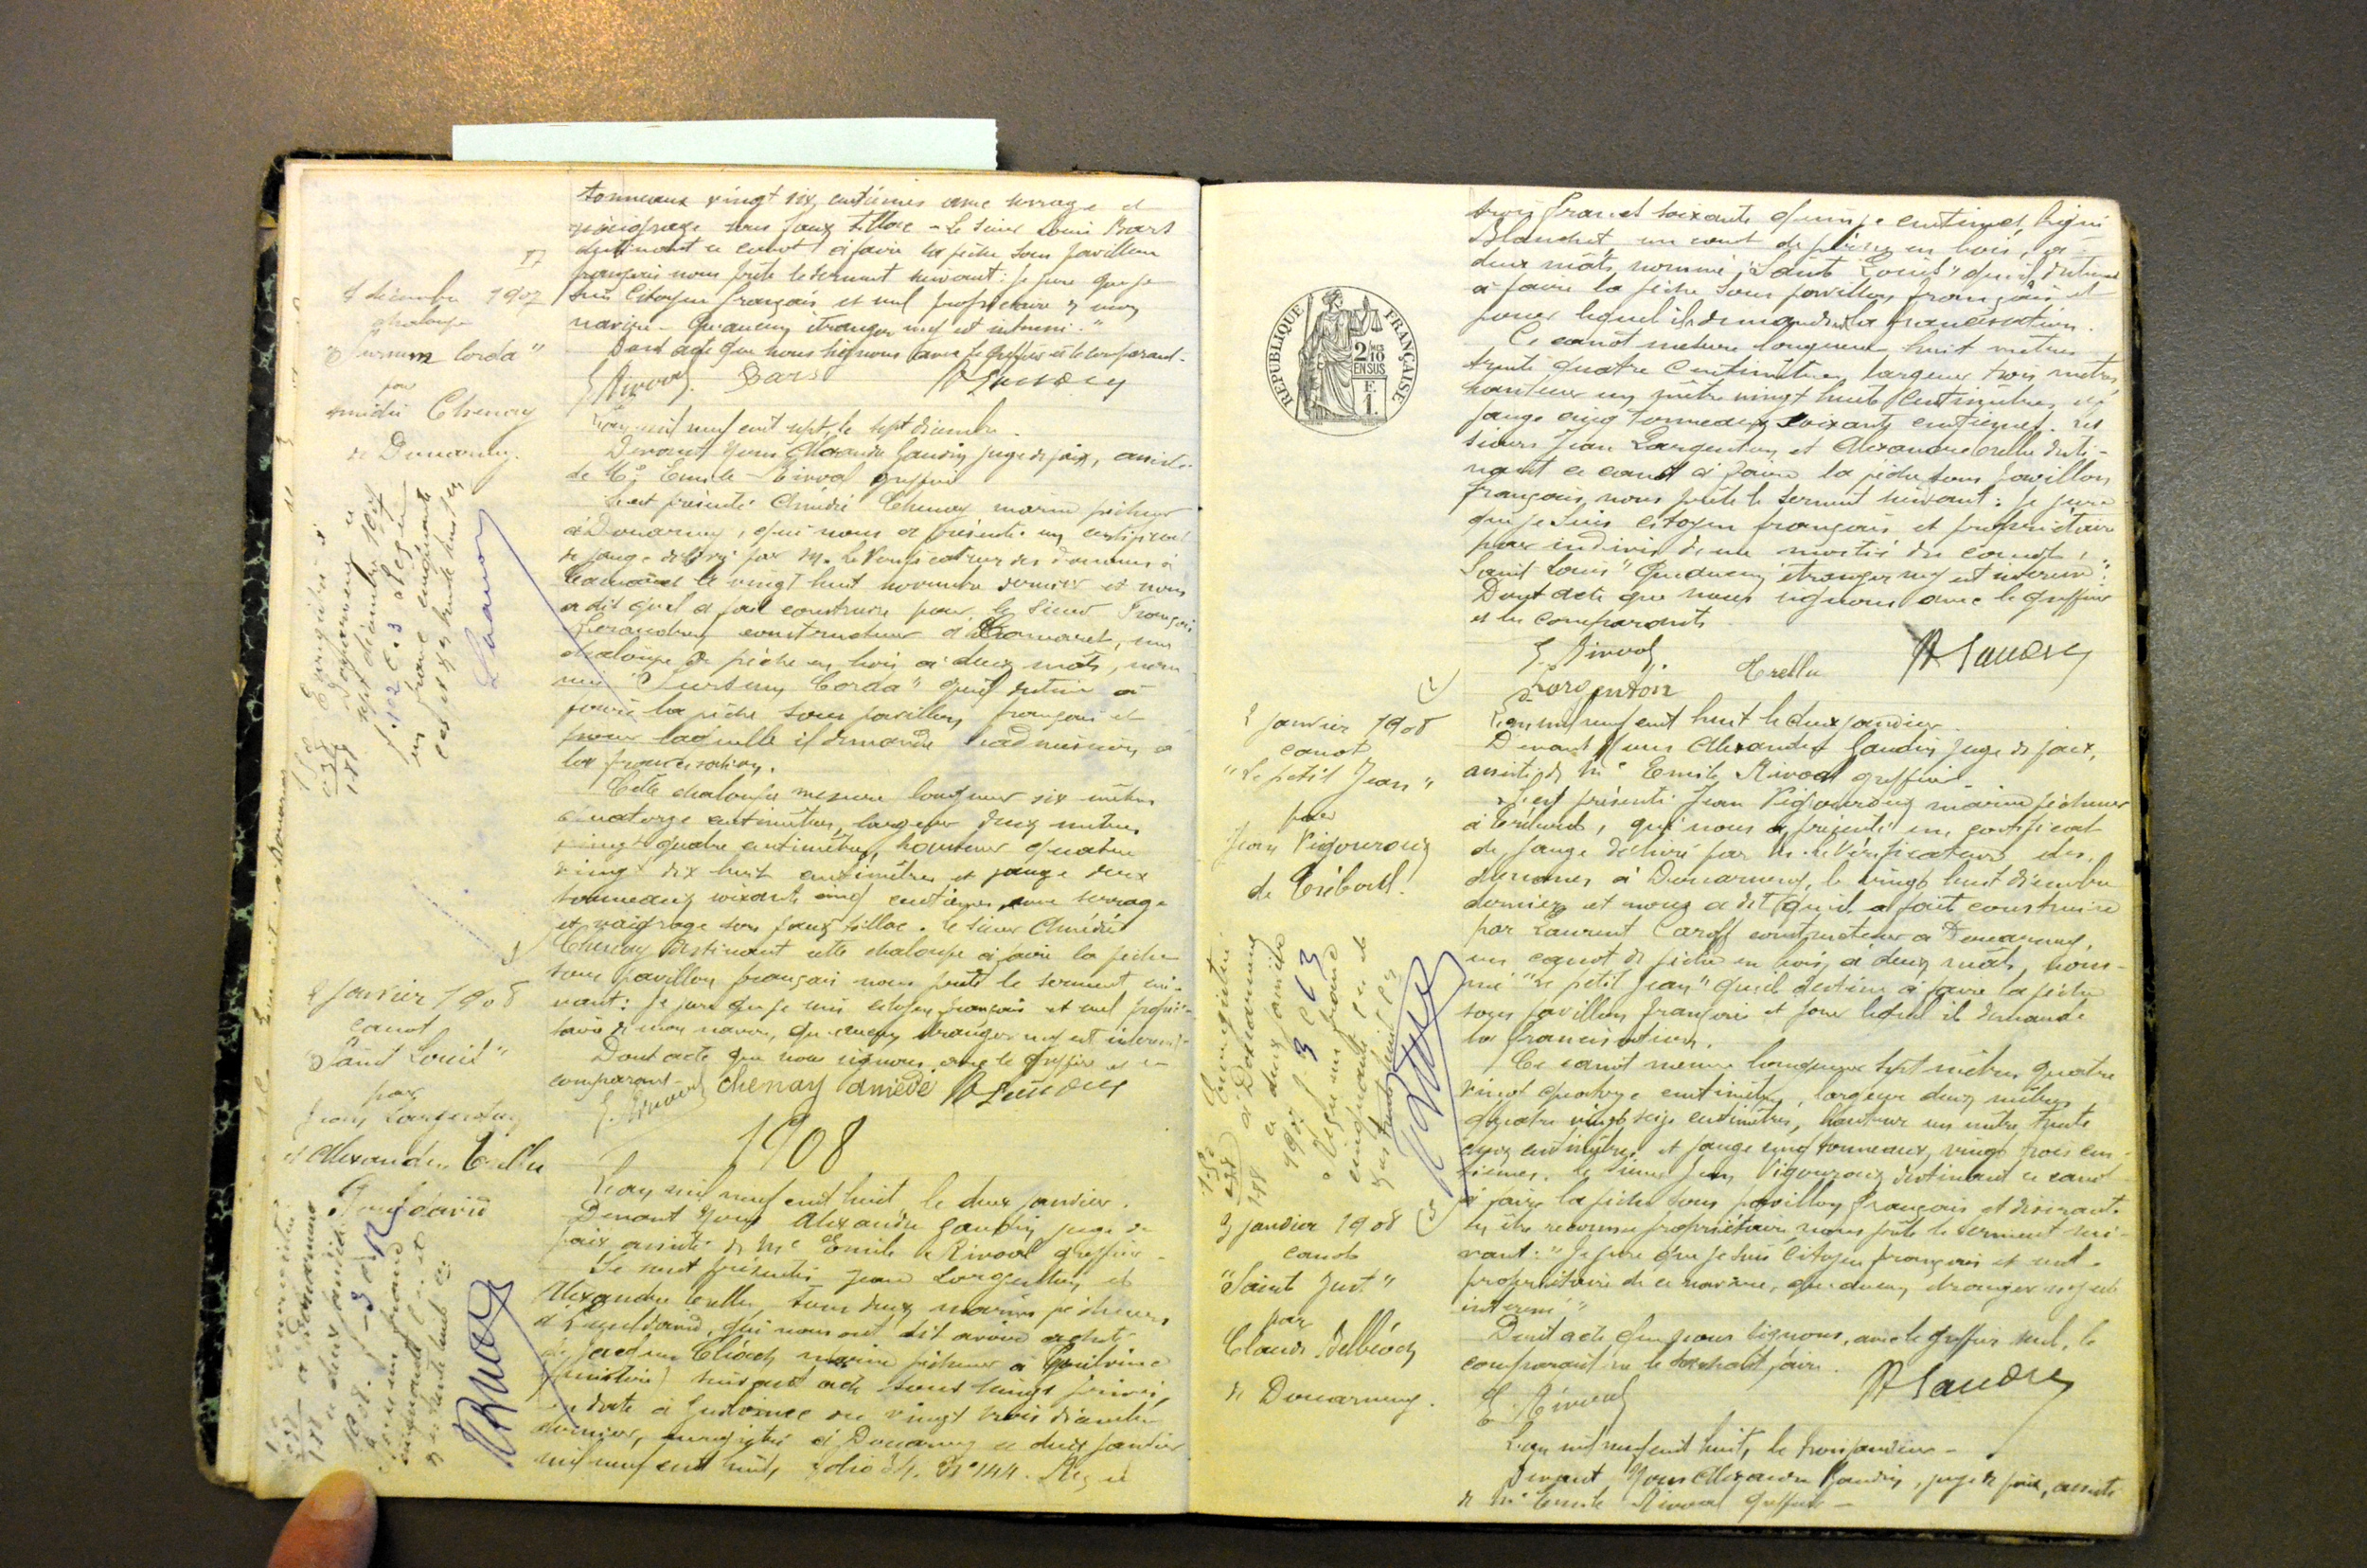 tonneaux vingt six centièmes avec serrage et
vaigrage sous faux tillac - le sieur Bars
destinant ce canot à faire la pêche sous pavillon
français nous prête le serment suivant : Je jure que je
suis citoyen français et seul propriétaire de mon
navire - Qu'aucun étranger n'y est intéressé."
Dont acte que nous signons avec le greffier et le comparant.
E Rivoal. Bars A Gaudin
7 décembre 1907
chaloupe
"Sursum Corda"
par
Amédée Chenay
de Douarnenez.
L'an mil neuf cent sept, le sept décembre.
Devant Nous Alexandre Gaudin juge de paix, assisté
de Me Emile Rivoal greffier
S'est présenté Amédée Chenay marin pêcheur
à Douarnenez, qui nous a présenté un certificat
de jauge délivré par M. le Vérificateur des douanes à
Camaret le vingt huit novembre dernier et nous
a dit qu'il a fait construire par le sieur François
constructeur à Camaret, une
chaloupe de pêche en bois à deux mâts, nom
mée "Sursum Corda" qu'il destine à
faire la pêche sous pavillon français et
pour laquelle il demande l'admission à
la francisation.
Cette chaloupe mesure longueur six mètres
quatorze centimètres, largeur deux mètres
vingt quatre centimètres, hauteur quatre
vingt dix huit centimètres et jauge deux
tonneaux soixante cinq centièmes avec serrage
et vaigrage sous faux tillac. Le sieur Amédée
Chenay destinant cette chaloupe à faire la pêche
sous pavillon français nous prête le serment sui-
vant : Je jure que je suis citoyen français et seul proprié-
taire de mon navire, qu'aucun étranger n'y est intéressé.
Dont acte que nous signons avec le greffier et le
comparant -
E. Rivoal chenay amédé A Gaudin
Enregistré à
Douarnenez le
sept décembre 1907
un franc cinquante
Lannon
1908
2 janvier 1908
canot
"Saint Louis"
par
Jean Largenton
et Alexandre Trellu
Pouldavid
L'an mil neuf cent huit, le deux janvier.
Devant Nous Alexandre Gaudin juge de
paix assisté de Me Emile Rivoal greffier -
Se sont présentés Jean Largenton et
Alexandre Trellu tous deux marins pêcheurs
à Pouldavid, qui nous ont dit avoir acheté
de marin pêcheur à Guilvinec
(Finistère) suivant acte sous seings privés,
en date à Guilvinec du vingt trois décembre
dernier, enregistré à Douarnenez le deux janvier
mil neuf cent huit, folio 34. No 144. Reçu
RÉPUBLIQUE FRANÇAISE
2/10
EN SUS
F.
1.
trois francs soixante quinze centimes, signé
Blanchet, un canot de pêche en bois, à
deux mâts, nommé "Saint Louis" qu'ils destinent
à faire la pêche sous pavillon français et
pour lequel ils demandent la francisation.
Ce canot mesure longueur huit mètres
trente quatre centimètres, largeur trois mètres
hauteur un mètre vingt huit centimètres et
jauge cinq tonneaux soixante centièmes. Les
sieurs Jean Largenton et Alexandre Trellu desti-
nant ce canot à faire la pêche sous pavillon
français, nous prête le serment suivant : Je jure
que je suis citoyen français et propriétaire
par indivis d'une moitié du canot
"Saint Louis" Qu'aucun étranger n'y est intéressé".
Dont acte que nous signons avec le greffier
et les comparants
E. Rivoal. Trellu A Gaudin
Largenton
2 janvier 1908
canot
"Le petit Jean"
par
Jean Vigouroux
de Tréboul.
L'an mil neuf cent huit le deux janvier
Devant Nous Alexandre Gaudin juge de paix,
assisté de Me Emile Rivoal greffier
S'est présenté Jean Vigouroux marin pêcheur
à Tréboul, qui nous a présenté un certificat
de jauge délivré par M. le Vérificateur des
douanes à Douarnenez, le vingt huit décembre
dernier et nous a dit qu'il a fait construire
par Laurent Caroff constructeur à Douarnenez,
un canot de pêche en bois à deux mâts, nom-
mé "Le petit Jean" qu'il destine à faire la pêche
sous pavillon français et pour lequel il demande
la francisation.
Ce canot mesure longueur sept mètres quatre
vingt quatorze centimètres, largeur deux mètres
quatre vingt seize centimètres, hauteur un mètre trente
cinq centimètres et jauge cinq tonneaux vingt trois cen-
tièmes. Le sieur Jean Vigouroux destinant ce canot
à faire la pêche sous pavillon français et désirant
en être reconnu propriétaire, nous prête le serment sui-
vant : "Je jure que je suis citoyen français et seul
propriétaire de ce navire, qu'aucun étranger n'y est
intéressé"
Dont acte que nous signons, avec le greffier seul, le
comparant ne le sachant faire.
E. Rivoal A Gaudin
3 janvier 1908
canot
"Saint Just"
par
de Douarnenez.
L'an mil neuf cent huit, le trois janvier -
Devant Nous Alexandre Gaudin, juge de paix, assisté
de Me Emile Rivoal greffier -